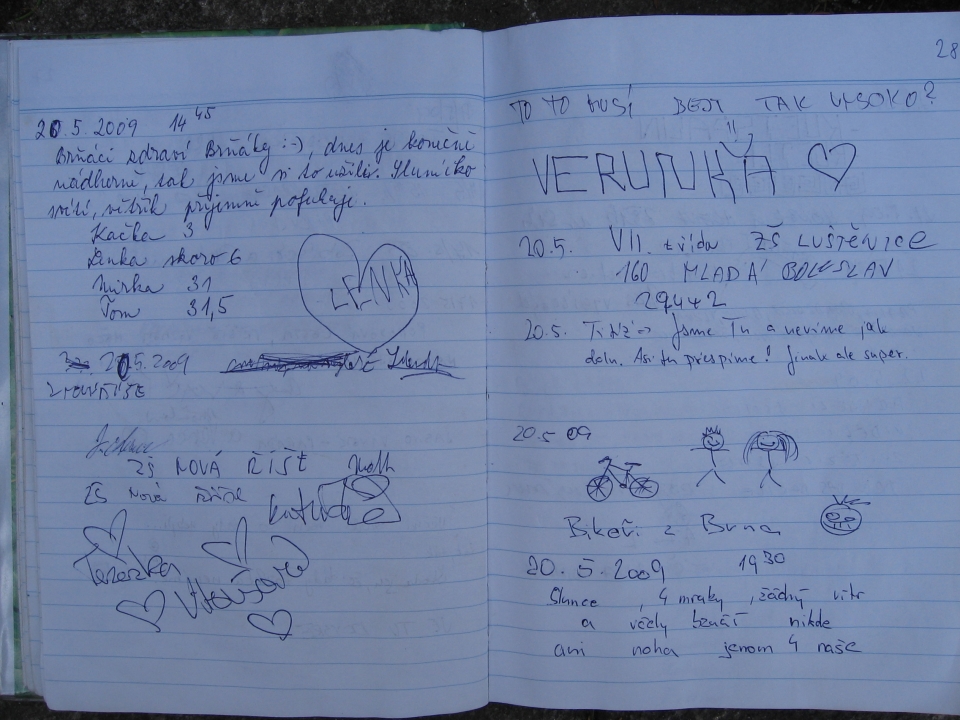 20.5.2009 14 45
Brňáci zdraví Brňáky :-), dnes je konečně
nádherně, tak jsme si to užili. Sluníčko
svítí, větřík příjemně pofukuje.
Kačka 3
Lenka skoro 6
Mirka 31
Tom 31,5
LENKA
20.5.2009
ZŠ NOVÁ ŘÍŠE
ZŠ Nová Říše
Terezka
28
TO TO MUSÍ BEJT TAK VYSOKO?
VERUNKA
20.5. VII. třída ZŠ LUŠTĚNICE
160 MLADÁ BOLESLAV
29442
20.5. Jsme Tu a nevíme jak
dolu. Asi tu přespíme! Jinak ale super.
20.5 09
Bikeři z Brna
20.5.2009 19 30
Slunce, 4 mraky, žádný vítr
a nikde
ani noha jenom 4 naše